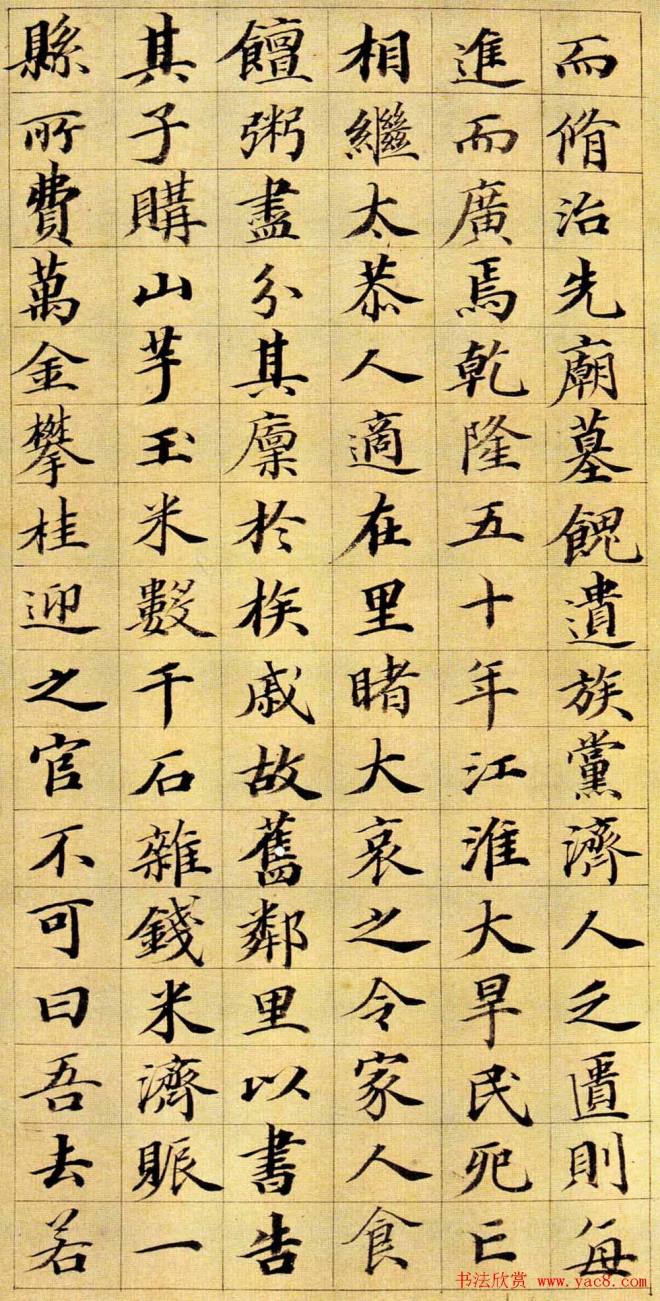 而脩治先廟墓餽遺族黨濟人乏匱則每
進而廣焉乾隆五十年江淮大旱民死亡
相繼太恭人適在里睹大哀之令家人食
饘粥盡分其廩於族戚故舊鄰里以書告
其子購山芋玉米數千石雜錢米濟賑一
縣所費萬金攀桂迎之官不可曰吾去若
书法欣赏 www.yac8.com